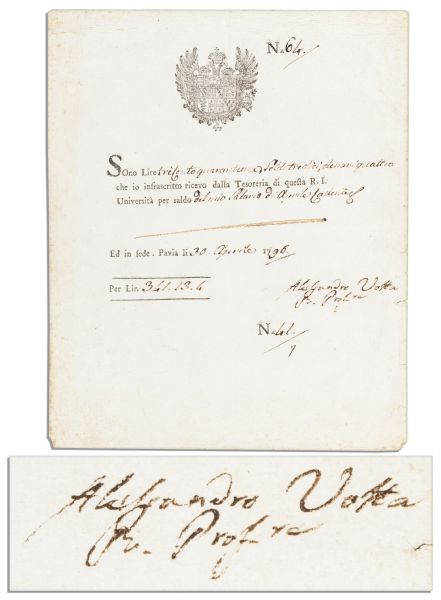 N. 64.
Sono Lire trecento quarantuna, Soldi tredici, denari quattro
che io infrascritto ricevo dalla Tesoreria di questa R. I.
Università per saldo del mio Salario di Aprile cadente
Ed in fede. Pavia li 30. Aprile 1796.
Per Lir. 341.13.4
Alessandro Volta
P. Profre
N.
Alessandro Volta
P. Profre